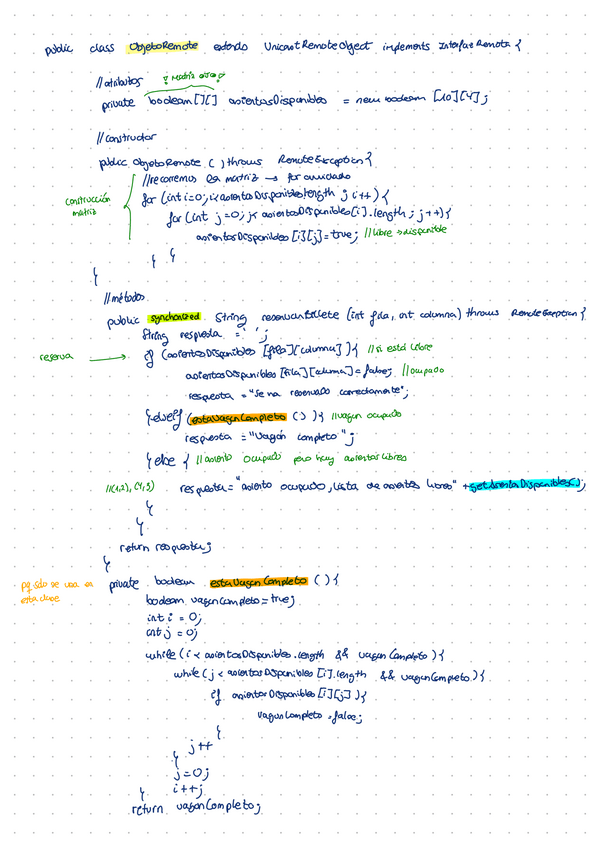 public class ObjetoRemoto extends UnicastRemoteObject implements InterfazRemota {
//atributos ¿Matriz array?
private boolean[][] asientosDisponibles = new boolean [10][4];
//constructor
public ObjetoRemoto () throws RemoteException {
//recorremos la matriz → for anidado
construcción matriz
for (int i=0; i<asientosDisponibles.length; i++) {
for (int j=0; j<asientosDisponibles[i].length; j++) {
asientosDisponibles [i][j]=true; //libre → disponible
} }
}
//métodos
public synchronized String reservarBillete (int fila, int columna) throws RemoteException {
String respuesta = ' ';
reserva → if (asientosDisponibles [fila][columna]) { // si está libre
asientosDisponibles [fila][columna]=false; //ocupado
respuesta = "Se ha reservado correctamente";
}else if (estaVagonCompleto ()) { //vagon ocupado
respuesta = "Vagón completo";
}else { //asiento ocupado pero hay asientos libres
//(1,2), (4,3) respuesta= "asiento ocupado, lista de asientos libres" + getAsientosDisponibles();
}
}
return respuesta;
}
pq solo se usa en esta clase
private boolean estaVagonCompleto () {
boolean vagonCompleto = true;
int i = 0;
int j = 0;
while (i < asientosDisponibles.length && vagonCompleto) {
while (j < asientosDisponibles [i].length && vagonCompleto) {
if asientosDisponibles [i][j] {
vagonCompleto = false;
}
j++
}
j=0;
i++;
}
return vagonCompleto;